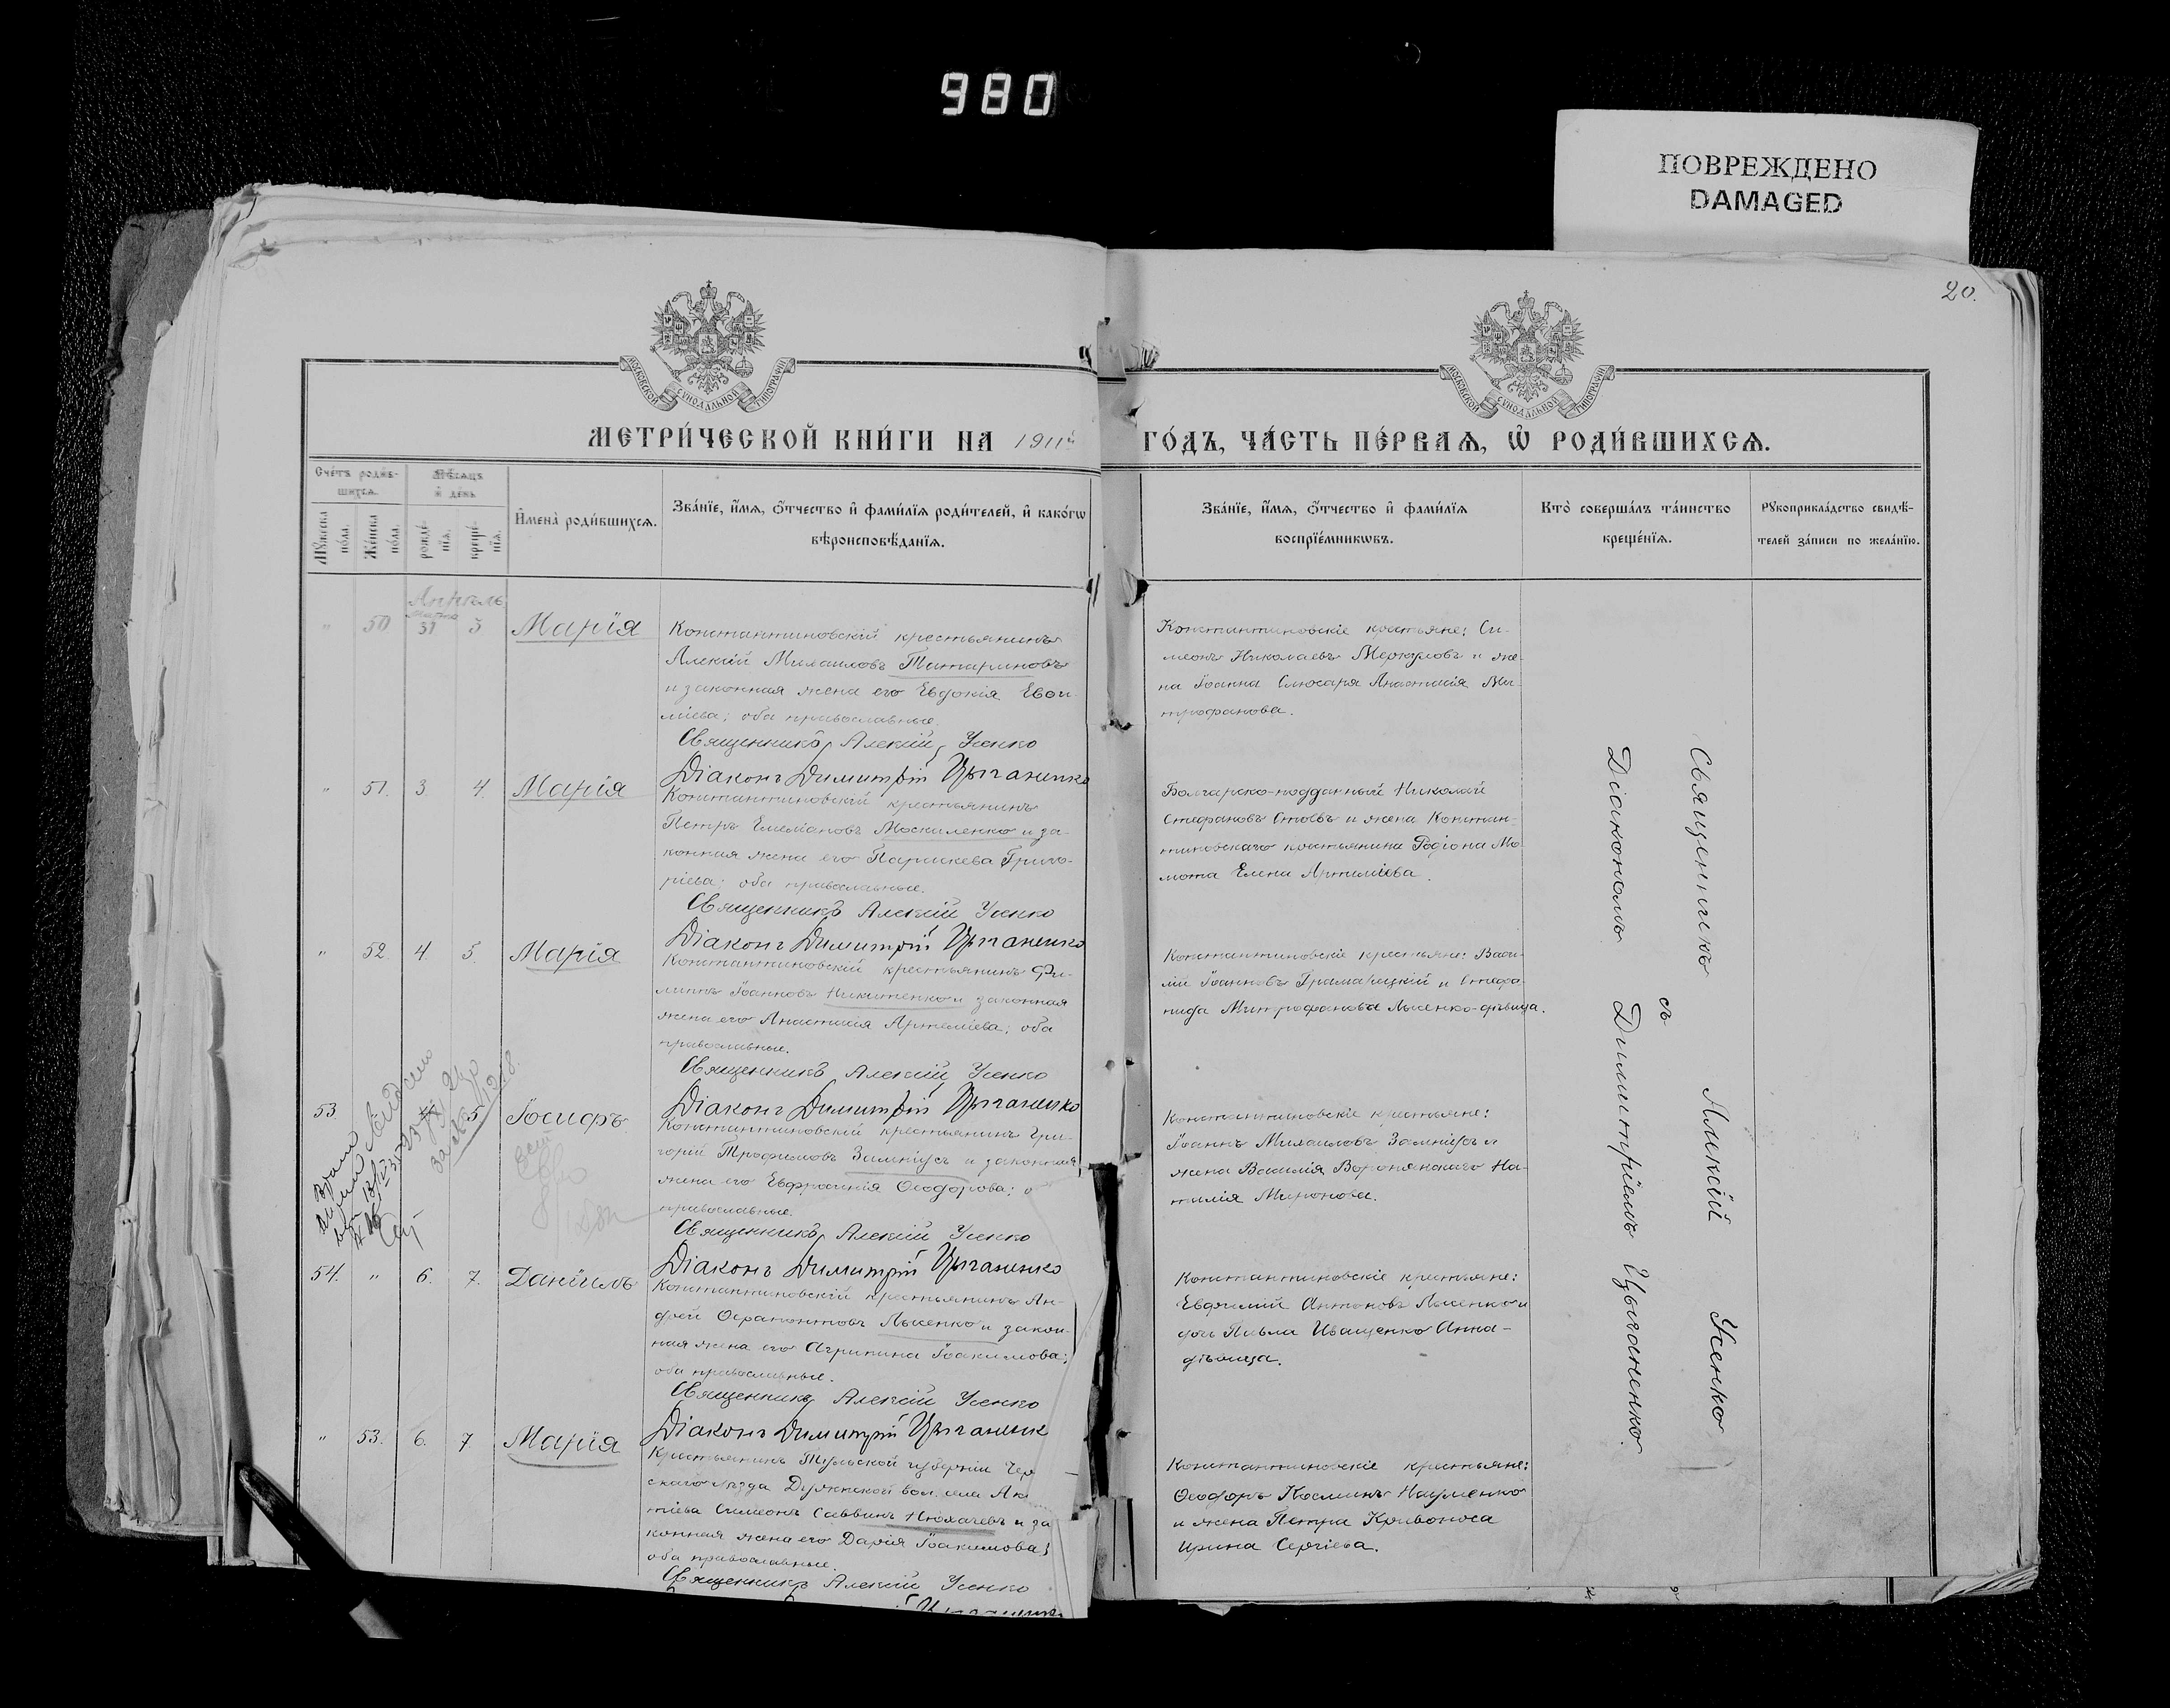 980
ПОВРЕЖДЕНО
DAMAGED
20.
МОСКОВСКОЙ СУНОДАЛЬНОЙ ТИПОГРАФІИ
МОСКОВСКОЙ СУНОДАЛЬНОЙ ТИПОГРАФІИ
МЕТРИ́ЧЕСКОЙ КНИ́ГИ НА 1911й ГО́ДЪ, ЧА́СТЬ ПЕ́РВАѦ, Ѡ҆ РОДИ́ВШИХСѦ.
Сче́тъ роди́в-
шихсѧ.
Мѣ́сѧцъ
и҆ де́нь
Мꙋ́жеска
по́ла.
Же́нска
по́ла.
рожде́-
нїѧ.
креще́-
нїѧ.
И҆мена̀ роди́вшихсѧ.
Зва́нїе, и҆́мѧ, ѻ҆́тчество и҆ фами́лїѧ роди́телей, и҆ како́гѡ
вѣроисповѣ́данїѧ.
Зва́нїе, и҆́мѧ, ѻ҆́тчество и҆ фами́лїѧ
воспрїе́мникѡвъ.
Кто̀ соверша́лъ та́инство
креще́нїѧ.
Рꙋкоприкла́дство свидѣ́-
телей за́писи по жела́нїю.
Апрѣль
Марта
" 50 31 3 Марія
Константиновскій крестьянинъ
Алексій Михаиловъ Татариновъ
и законная жена его Евдокія Евои-
міева; оба православные.
Священникъ Алексій Усенко
Діаконъ Димитрій Цыганенко
Константиновскіе крестьяне: Си-
меонъ Николаевъ Меркуловъ и же-
на Іоанна Слюсаря Анастасія Ми-
трофанова.
" 51. 3. 4. Марія
Константиновскій крестьянинъ
Петръ Емеліановъ Москаленко и за-
конная жена его Параскева Григо-
ріева; оба православные.
Священникъ Алексій Усенко
Діаконъ Димитрій Цыганенко
Болгарско-подданный Николай
Стефановъ Стоевъ и жена Констан-
тиновскаго крестьянина Родіона Мо-
мота Елена Артеміева.
" 52. 4. 5. Марія
Константиновскій крестьянинъ Фи-
липпъ Іоанновъ Никитенко и законная
жена его Анастасія Артеміева; оба
православные.
Священникъ Алексій Усенко
Діаконъ Димитрій Цыганенко
Константиновскіе крестьяне: Васи-
лій Іоанновъ Грамарицкій и Стефа-
нида Митрофанова Лысенко-дѣвица.
53. 5 Іосифъ
Константиновскій крестьянинъ Гри-
горій Трофимовъ Замніусъ и законная
жена его Евфросинія Ѳеодорова; о
православные.
Священникъ Алексій Усенко
Діаконъ Димитрій Цыганенко
Константиновскіе крестьяне:
Іоаннъ Михаиловъ Замніусъ и
жена Василія Воронянскаго На-
талія Миронова.
54. " 6. 7. Даніилъ
Константиновскій крестьянинъ Ан-
дрей Ѳерапонтовъ Лысенко и закон-
ная жена его Агрипина Іоакимова;
оба православные.
Священникъ Алексій Усенко
Діаконъ Димитрій Цыганенк
Константиновскіе крестьяне:
Евфимій Антоновъ Лысенко и
дочь Павла Иващенко Анна-
дѣвица.
" 53. 6. 7. Марія
Крестьянинъ Тульской губерніи Чер
скаго уѣзда вол. села
Симеонъ Саввинъ Нюхачевъ и за
конная жена его Дарія Іоакимова;
оба православные.
Священникъ Алексій Усенко
Константиновскіе крестьяне:
Ѳеодоръ Косминъ Науменко
и жена Петра Кривоноса
Ирина Сергіева.
Священникъ Алексій Усенко
съ
Діакономъ Димитріемъ Цыганенко.